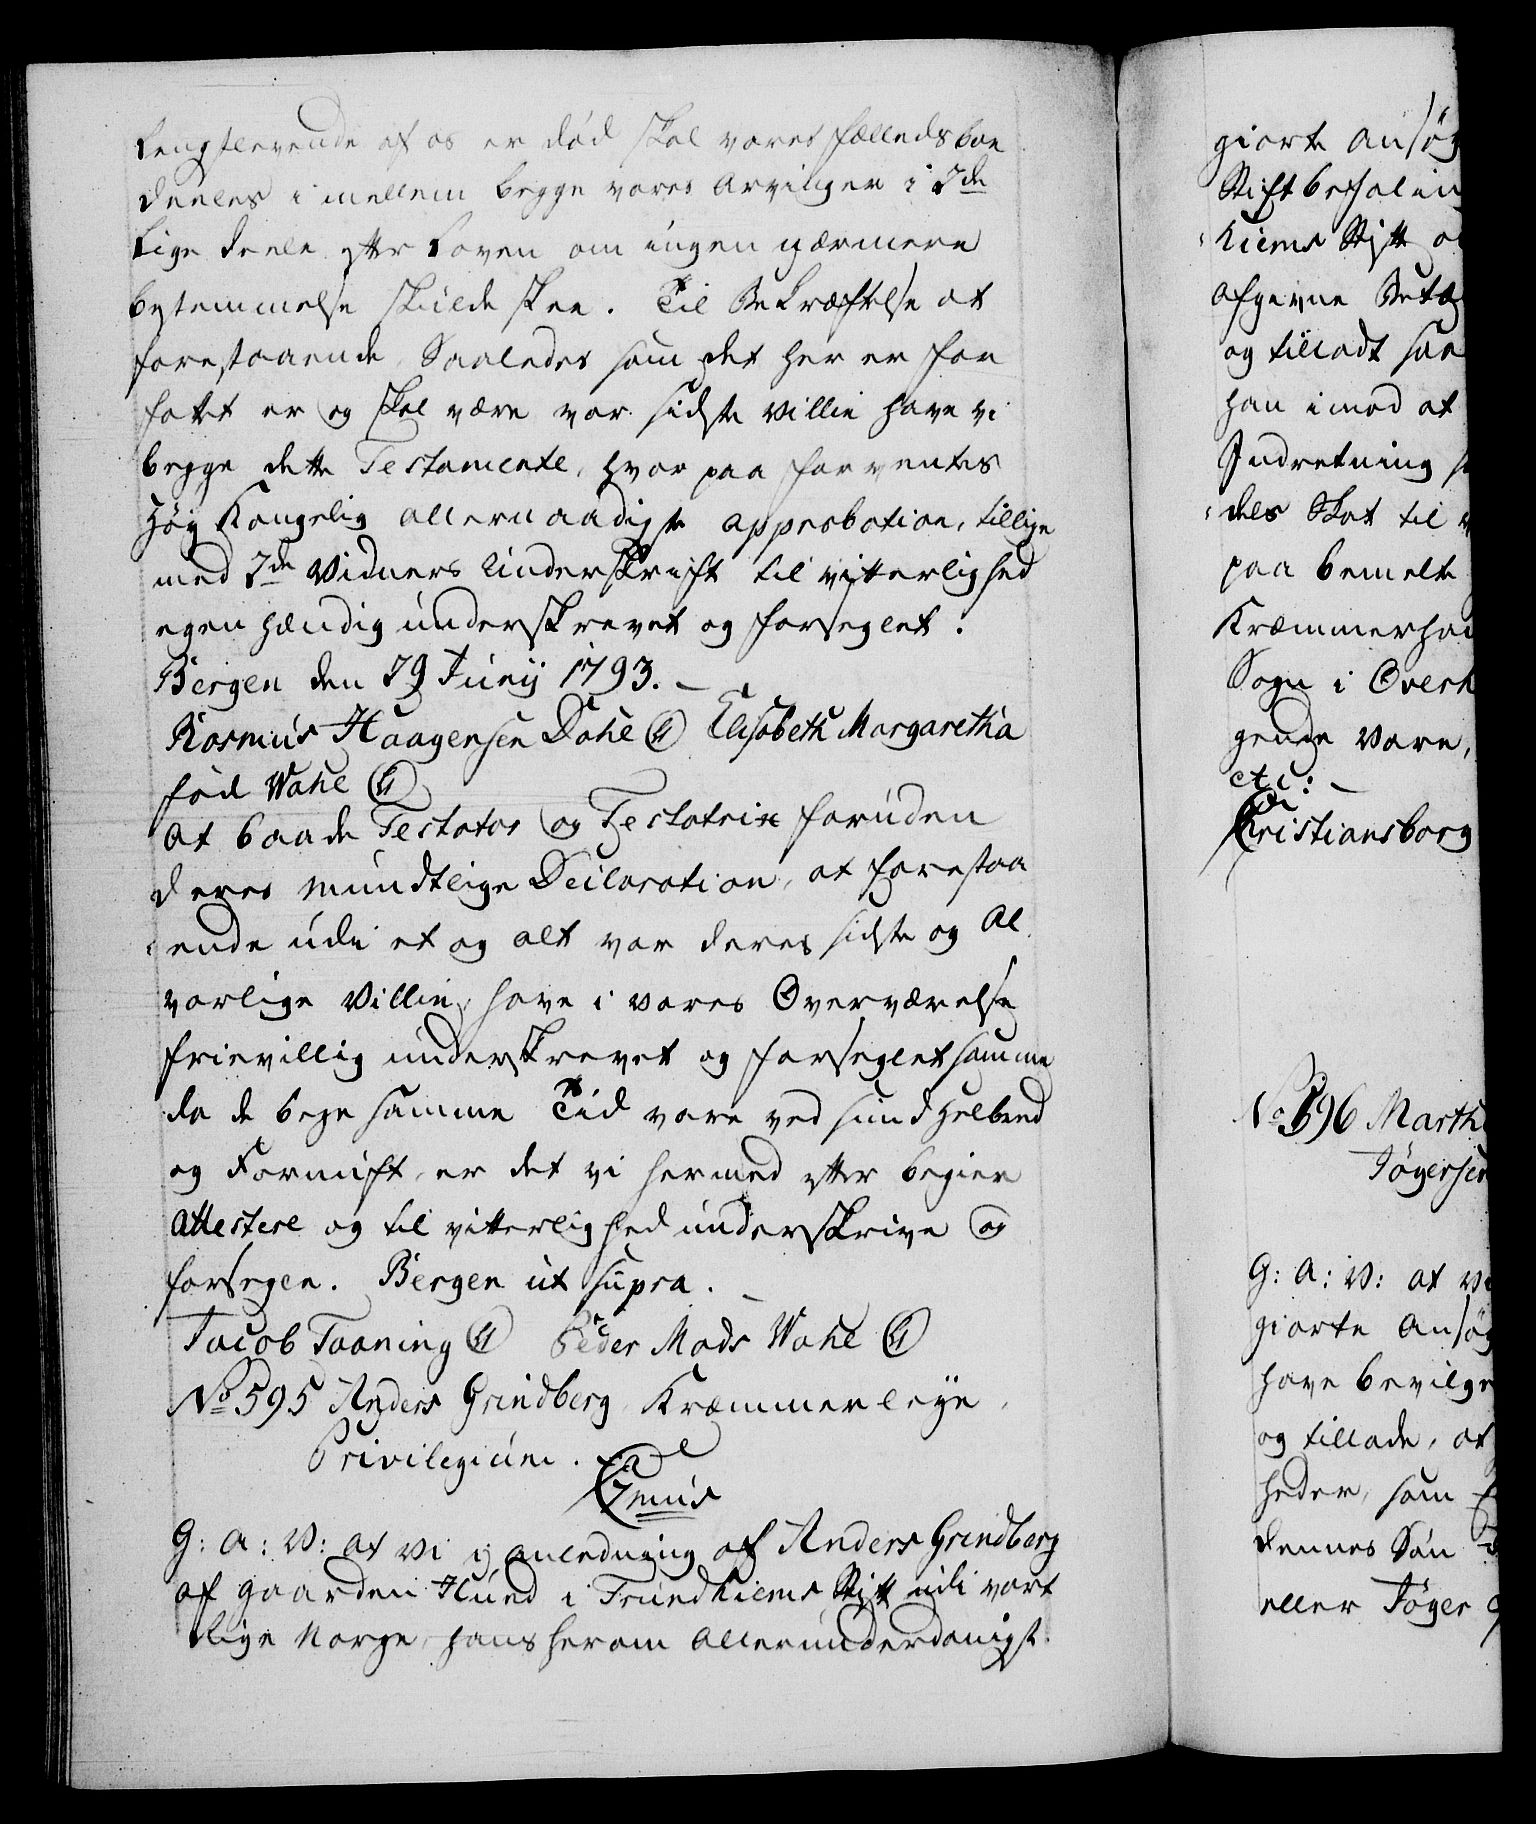 Lengstlevende af os er død skal vores fælleds boe
deeles i mellem begge vores Arvinger i 2de
lige deele efter Loven om ingen nærmere
bestemmelse skulde skee. Til Bekræftelse at
forestaaende Saaledes som det her er for
fattet er og skal være vor sidste villie have vi
begge dette Testamente, hvor paa forventes
høy Kongelig allernaadigste approbation, tillige
med 2de Vidners Underskrift til vitterlighed
egenhændig underskrevet og forseglet.
Bergen den 29 Junij 1793. –
Rasmus Haagensen Dahl Elisabeth Margaretha
fød Wahl
At baade Testator og Testatrix foruden
deres mundtlige Declaration, at forestaa
ende udi et og alt var deres sidste og Al
vorlige Villie, have i vores Overværelse
frievillig underskrevet og forseglet samme
da de bege samme Tid vare ved sund helbred
og Fornuft, er det vi hermed efter begier
Attestere og til vitterlighed underskrive og
forsegen. Bergen ut supra.
Jacob Taaning Peder Mads Wahl
No 595 Anders Grindberg Kræmmerleye
Privilegium.
G: A: V: at vi i anledning af Anders Grindberg
af gaarden Hund i Trundhiems Stift udi vort
Rige Norge, hans herom Allerunderdanigst
giorte Ansøg
Stiftbefalin
hiems Stift o
afgivne Betæ
og tilladt saa
han imod at
Indretning s
dels Skat til
paa bemelte
Kræmmerhan
Sogn i Overh
gende Vare,
etc: –
Christiansborg
No 596 Marth
Jøgersen
G: A: V: at vi
giorte Ansøg
have bevilge
og tillade, at
heder, som
dennes Søn
eller Jøger